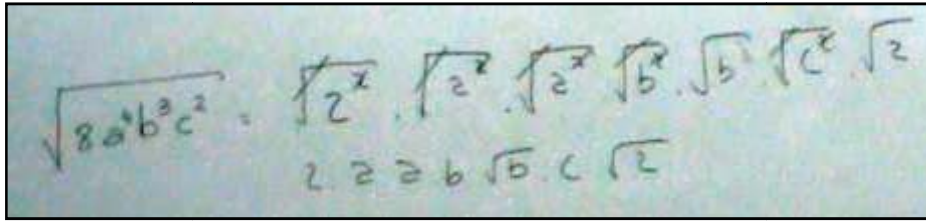 √(8a⁴b³c²) = √2² · √a² · √a² √b² · √b · √c² · √2
2 · a a b √b · c √2